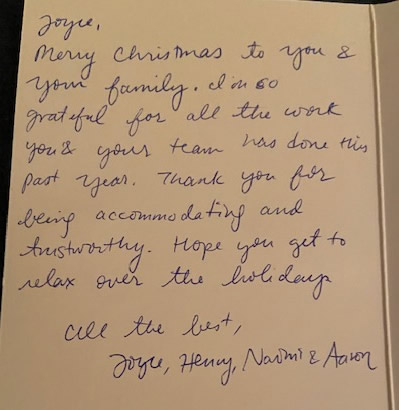 Joyce,
Merry Christmas to you &
your family. I'm so
grateful for all the work
you & your team has done this
past year. Thank you for
being accommodating and
trustworthy. Hope you get to
relax over the holidays
all the best,
Joyce, Henry, Naomi & Aaron